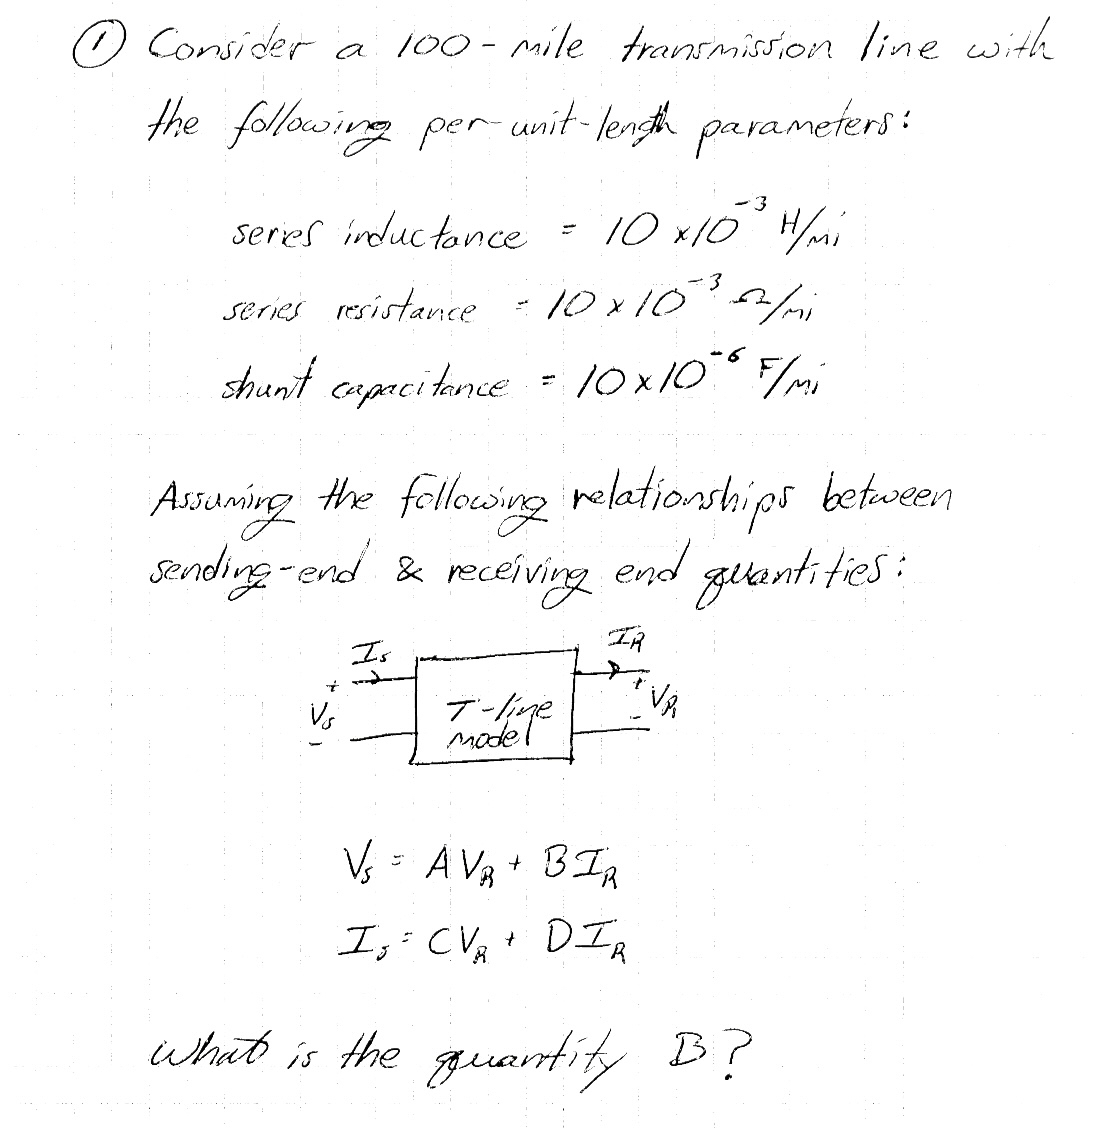 ① Consider a 100-mile transmission line with
the following per-unit-length parameters:
series inductance = 10 x 10⁻³ H/mi
series resistance = 10 x 10⁻³ Ω/mi
shunt capacitance = 10 x 10⁻⁶ F/mi
Assuming the following relationships between
sending-end & receiving end quantities:
I_S I_R
+ V_S - T-line model + V_R -
V_S = A V_R + B I_R
I_S = C V_R + D I_R
What is the quantity B?